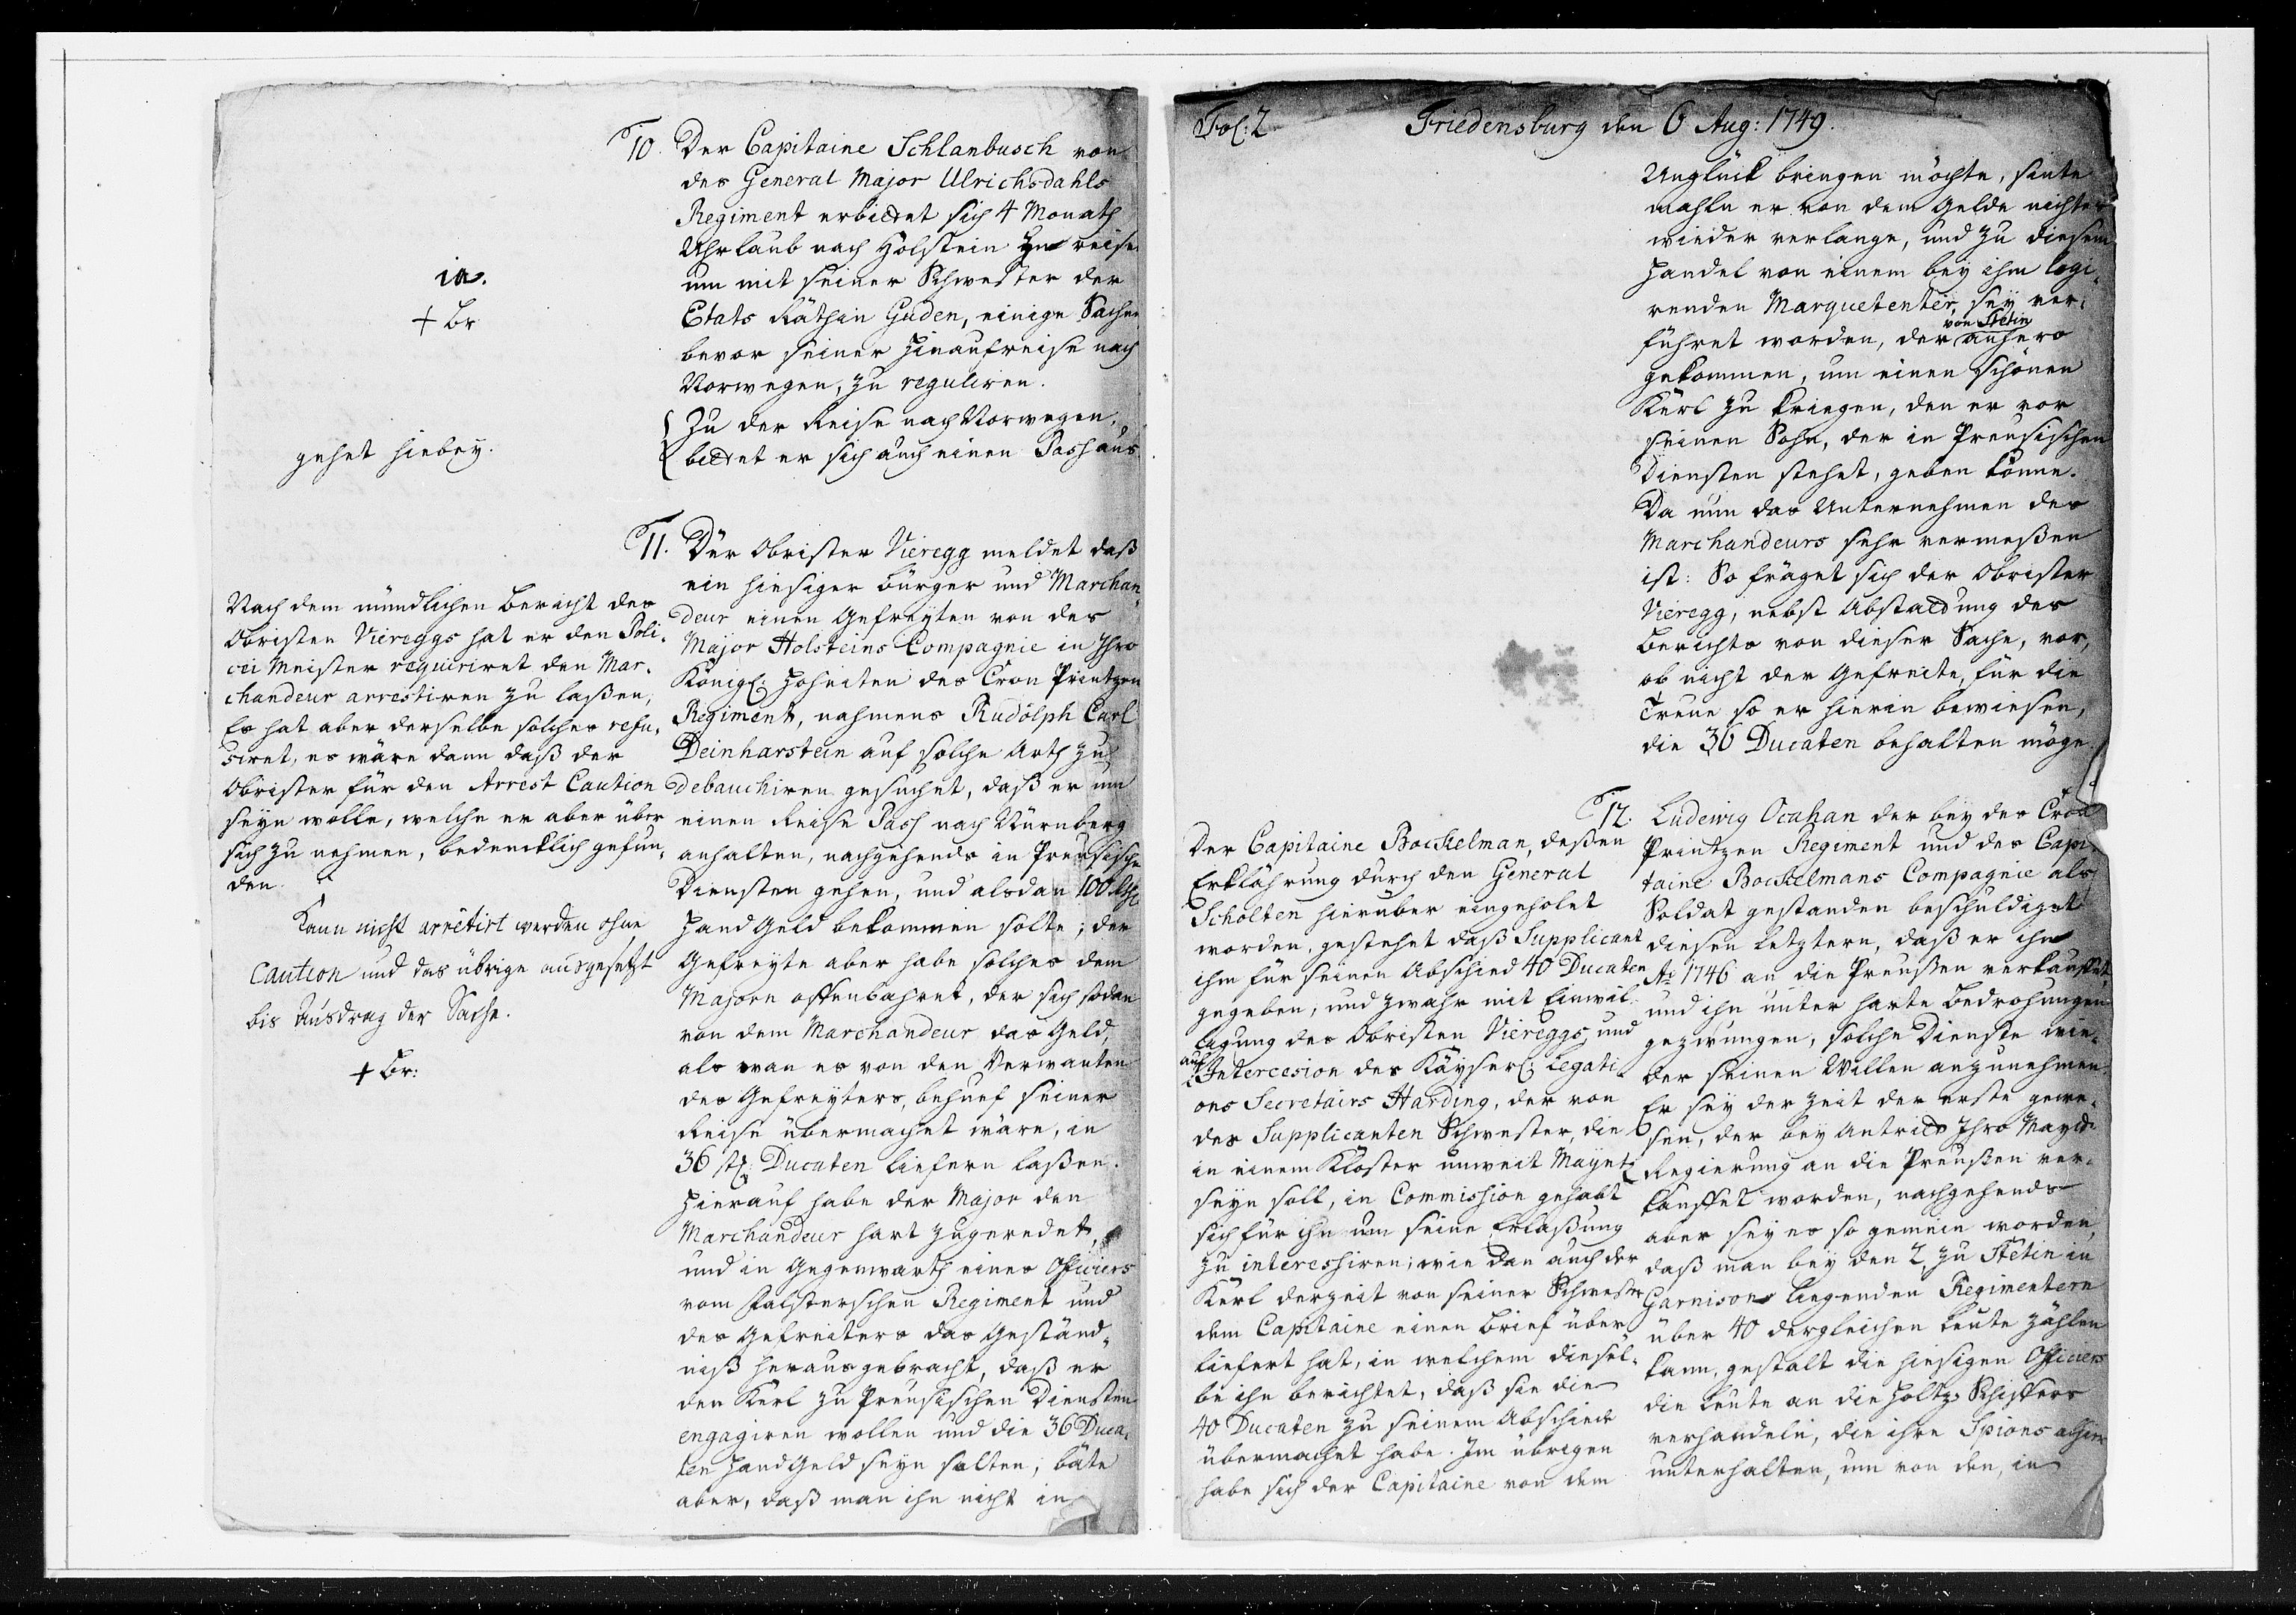 10. Der Capitaine Schlanbusch von
des General Major Ulrichsdahls
Regiment erbittet sich 4 Monath
Uhrlaub nach Holstein zu reise
um mit seiner Schwester der
Etats Räthin Guden, einige Sachen
bevor seiner Hinaufreise nach
Norwegen, zu reguliren.
ia.
+ Br
Zu der Reise nach Norwegen,
bittet er sich auch einen Pass aus.
gehet hiebey.
11. Der Obrister Vieregg meldet daß
ein hiesiger bürger und Marchan
deur einen Gefreyten von des
Major Holsteins Compagnie in Ihro
Königl: Hoheiten des Cron Printzen
Regiment, nahmens Rudolph Carl
Deinharstein auf solche Arth zu
debauchiren gesuchet, daß er um
einen Reise Pass nach Nürnberg
anhalten, nachgehends in Preusische
Diensten gehen, und alsdan 100 
Hand Geld bekommen solte; der
Gefreyte aber habe solches dem
Majorn offenbahret, der sich sodan
von dem Marchandeur das Geld,
als wan es von den Verwanten
des Gefreyters, behuef seiner
Reise übermachet wäre, in
36 st: Ducaten liefern laßen.
Hierauf habe der Major den
Marchandeur hart zugeredet,
und in Gegenwarth eines Officiers
vom Falsterschen Regiment und
des Gefreiters das Geständ-
niß heraus gebracht, daß er
den Kerl zu Preusischen Diensten
engagiren wollen und die 36 Duca-
ten Hand Geld seyn solten; bäte
aber, daß man ihn nicht in
Nach dem mündlichen bericht des
Obristen Viereggs hat er den Poli-
cei Meister requiriret den Mar-
chandeur arrestiren zu laßen,
Es hat aber derselbe solches refu-
siret, es wäre dann daß der
Obrister für den Arrest Caution
seyn wolle, welche er aber über
sich zu nehmen, bedencklich gefun-
den.
Kann nicht arrêtirt werden ohne
Caution und das übrige ausgesetzt
bis Ausdrag der Sache.
+ Br:
Fol: 2 Friedensburg den 6 Aug: 1749.
Unglück bringen möchte, sinte
mahln er von dem Gelde nichtes
wieder verlange, und zu diesem
Handel von einem bey ihm logi-
renden Marquetenter, sey ver-
führet worden, der von Stetin anhero
gekommen, um einen schönen
Kerl zu kriegen, den er vor
seinen Sohn, der in Preusischen
Diensten stehet, geben könne.
Da nun das Unternehmen des
Marchandeurs sehr vermeßen
ist: So fräget sich der Obrister
Vieregg, nebst Abstattung des
Berichts von dieser Sache, vor,
ob nicht der Gefreite, für die
Treue so er hierin bewiesen,
die 36 Ducaten behalten möge.
12. Ludewig Ocahan der bey des Cron
Printzen Regiment und des Capi
taine Bockelmans Compagnie als
Soldat gestanden beschuldiget
diesen letztern, daß er ihn
Ao 1746 an die Preußen verkauffet,
und ihn unter harte bedrohungen
gezwungen, solche Dienste wie-
der seinen Willen anzunehmen.
Er sey der Zeit der erste gewe-
sen, der bey Antritt Ihro Maytt:
Regierung an die Preußen ver-
kauffet worden, nachgehends
aber sey es so gemein worden,
daß man bey den 2 zu Stetin in
Garnison liegenden Regimentern
über 40 dergleichen leute zählen
kann, gestalt die hiesigen Officiers
die leute an die Holtz-Schiffers
verhandeln, die ihre Spions alhier
unterhalten, um von den, in
Der Capitaine Bockelman, deßen
Erklährung durch den General
Scholten hierüber eingeholet
worden, gestehet daß Supplicant
ihm für seinen Abschied 40 Ducaten
gegeben; und zwahr mit Einwil-
ligung des Obristen Viereggs, und
auf Intercesion des Käyserl: Legati-
ons Secretairs Harding, der von
des Supplicanten Schwester, die
in einem Kloster unweit Mayntz
seyn soll, in Commission gehabt
sich für ihn um seine Erlaßung
zu interessiren; wie dan auch der
Kerl derzeit von seiner Schwester
dem Capitaine einen Brief über-
liefert hat, in welchem diesel-
be ihn berichtet, daß sie die
40 Ducaten zu seinem Abschiede
übermachet habe. Im übrigen
habe sich der Capitaine von dem